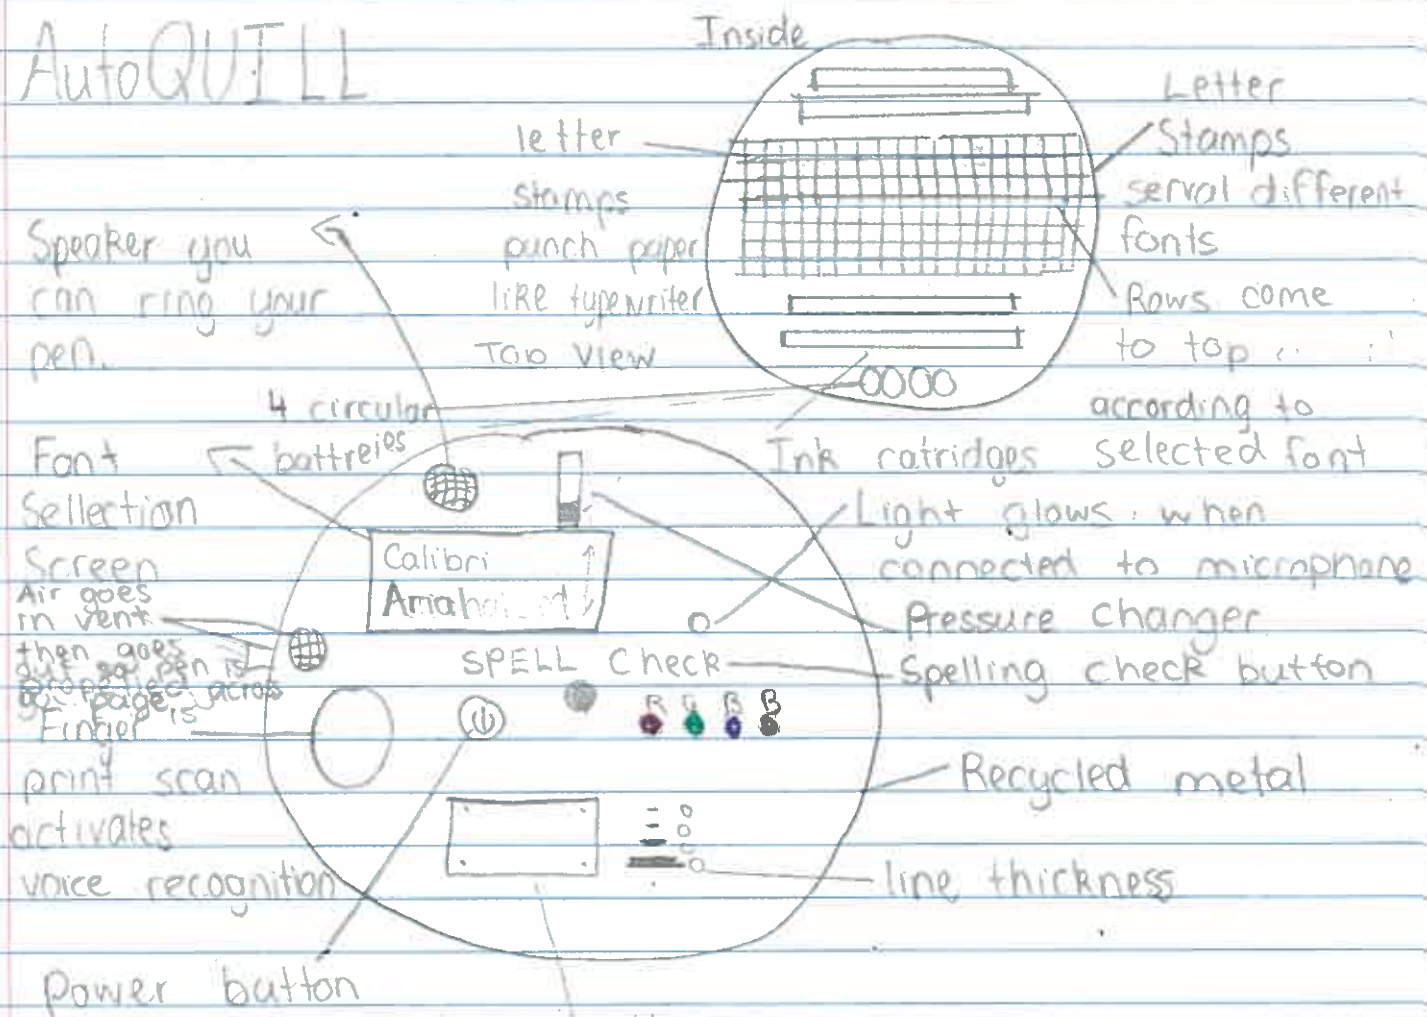 AutoQUILL
Inside
letter
stamps
punch paper
like typewriter
Top View
Letter
Stamps
serval different
fonts
Rows come
to top
according to
selected font
Speaker you
can ring your
pen.
4 circular
battreies
Ink catridges
Font
Sellection
Screen
Calibri
Light glows when
connected to microphone
Pressure Changer
Air goes
in vent
then goes
out so pen is
across
page
SPELL Check
Spelling check button
R G B B
Finger
print scan
activates
voice recognition
Recycled metal
line thickness
Power button